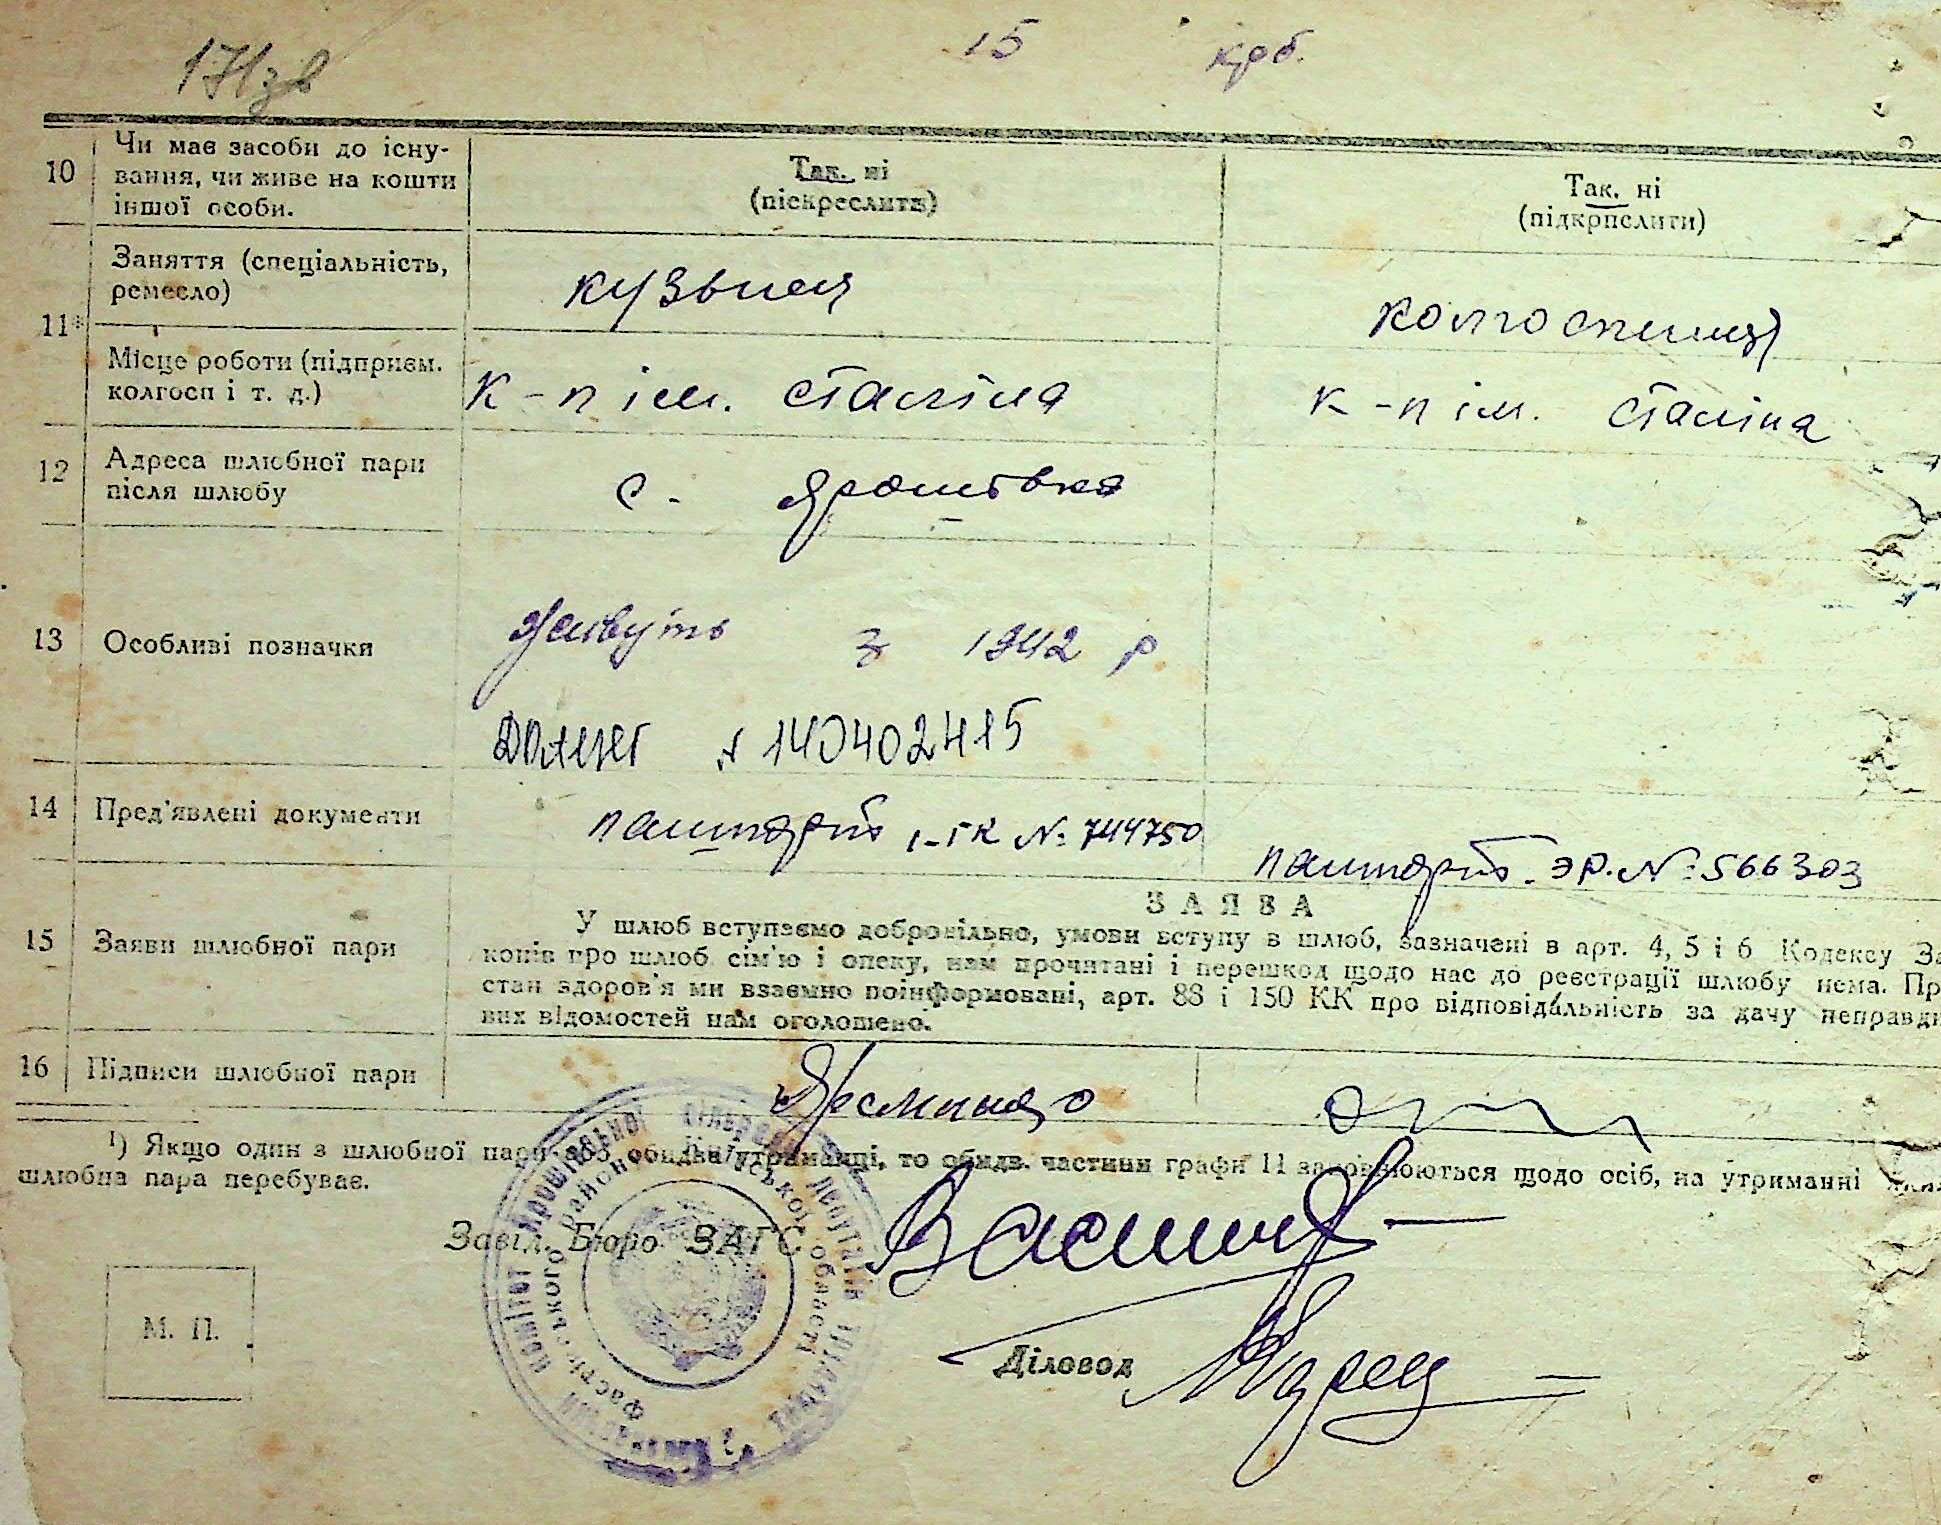 171зв
15 крб.
10 Чи має засоби до існу-
вання, чи живе на кошти
іншої особи.
Так. ні
(піскреслити)
Так. ні
(підкрпслити)
11
Заняття (спеціальність,
ремесло)
кузьня
колгоспниця
Місце роботи (підприєм.
колгосп і т. д.)
к-п ім. Сталіна
к-п ім. Сталіна
12 Адреса шлюбної пари
після шлюбу
с. Ярошівка
13 Особливі позначки
Живуть з 1942 р
№ 140402415
14 Пред'явлені документи
пашпорт І-ГК №: 744750
пашпорт. ЭР. №: 566303
ЗАЯВА
15 Заяви шлюбної пари
У шлюб вступаємо добровільно, умови вступу в шлюб, зазначені в арт. 4, 5 і 6 Кодексу За
конів про шлюб, сім'ю і опеку, нам прочитані і перешкод щодо нас до реєстрації шлюбу нема. Пр
стан здоров'я ми взаємно поінформовані, арт. 88 і 150 КК про відповідальність за дачу неправди
вих відомостей нам оголошено.
16 Підписи шлюбної пари
1) Якщо один з шлюбної пари або обидва утриманці, то обидв. частини графи 11 заповнюються щодо осіб, на утриманні яких
шлюбна пара перебуває.
Завід. Бюро ЗАГС
М. П.
Діловод